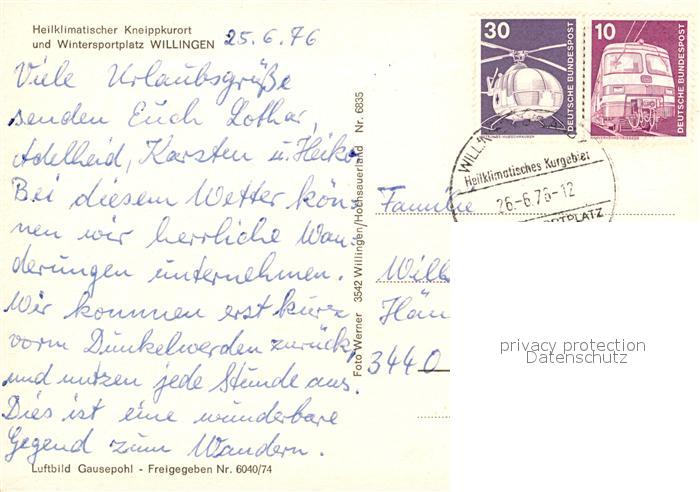 Heilklimatischer Kneippkurort
und Wintersportplatz WILLINGEN
25.6.76
Viele Urlaubsgrüße
senden Euch Lothar,
Adelheid, Karsten u. Heiko.
Bei diesem Wetter kön-
nen wir herrliche Wan-
derungen unternehmen.
Wir kommen erst kurz
vorm Dunkelwerden zurück
und nutzen jede Stunde aus.
Dies ist eine wunderbare
Gegend zum Wandern.
Luftbild Gausepohl - Freigegeben Nr. 6040/74
Foto Werner 3542 Willingen/Hochsauerland Nr. 6835
30
DEUTSCHE BUNDESPOST
10
DEUTSCHE BUNDESPOST
WILLIN
Heilklimatisches Kurgebiet
26.-6.76-12
RTPLATZ
Familie
Will
Hän
3440
privacy protection
Datenschutz